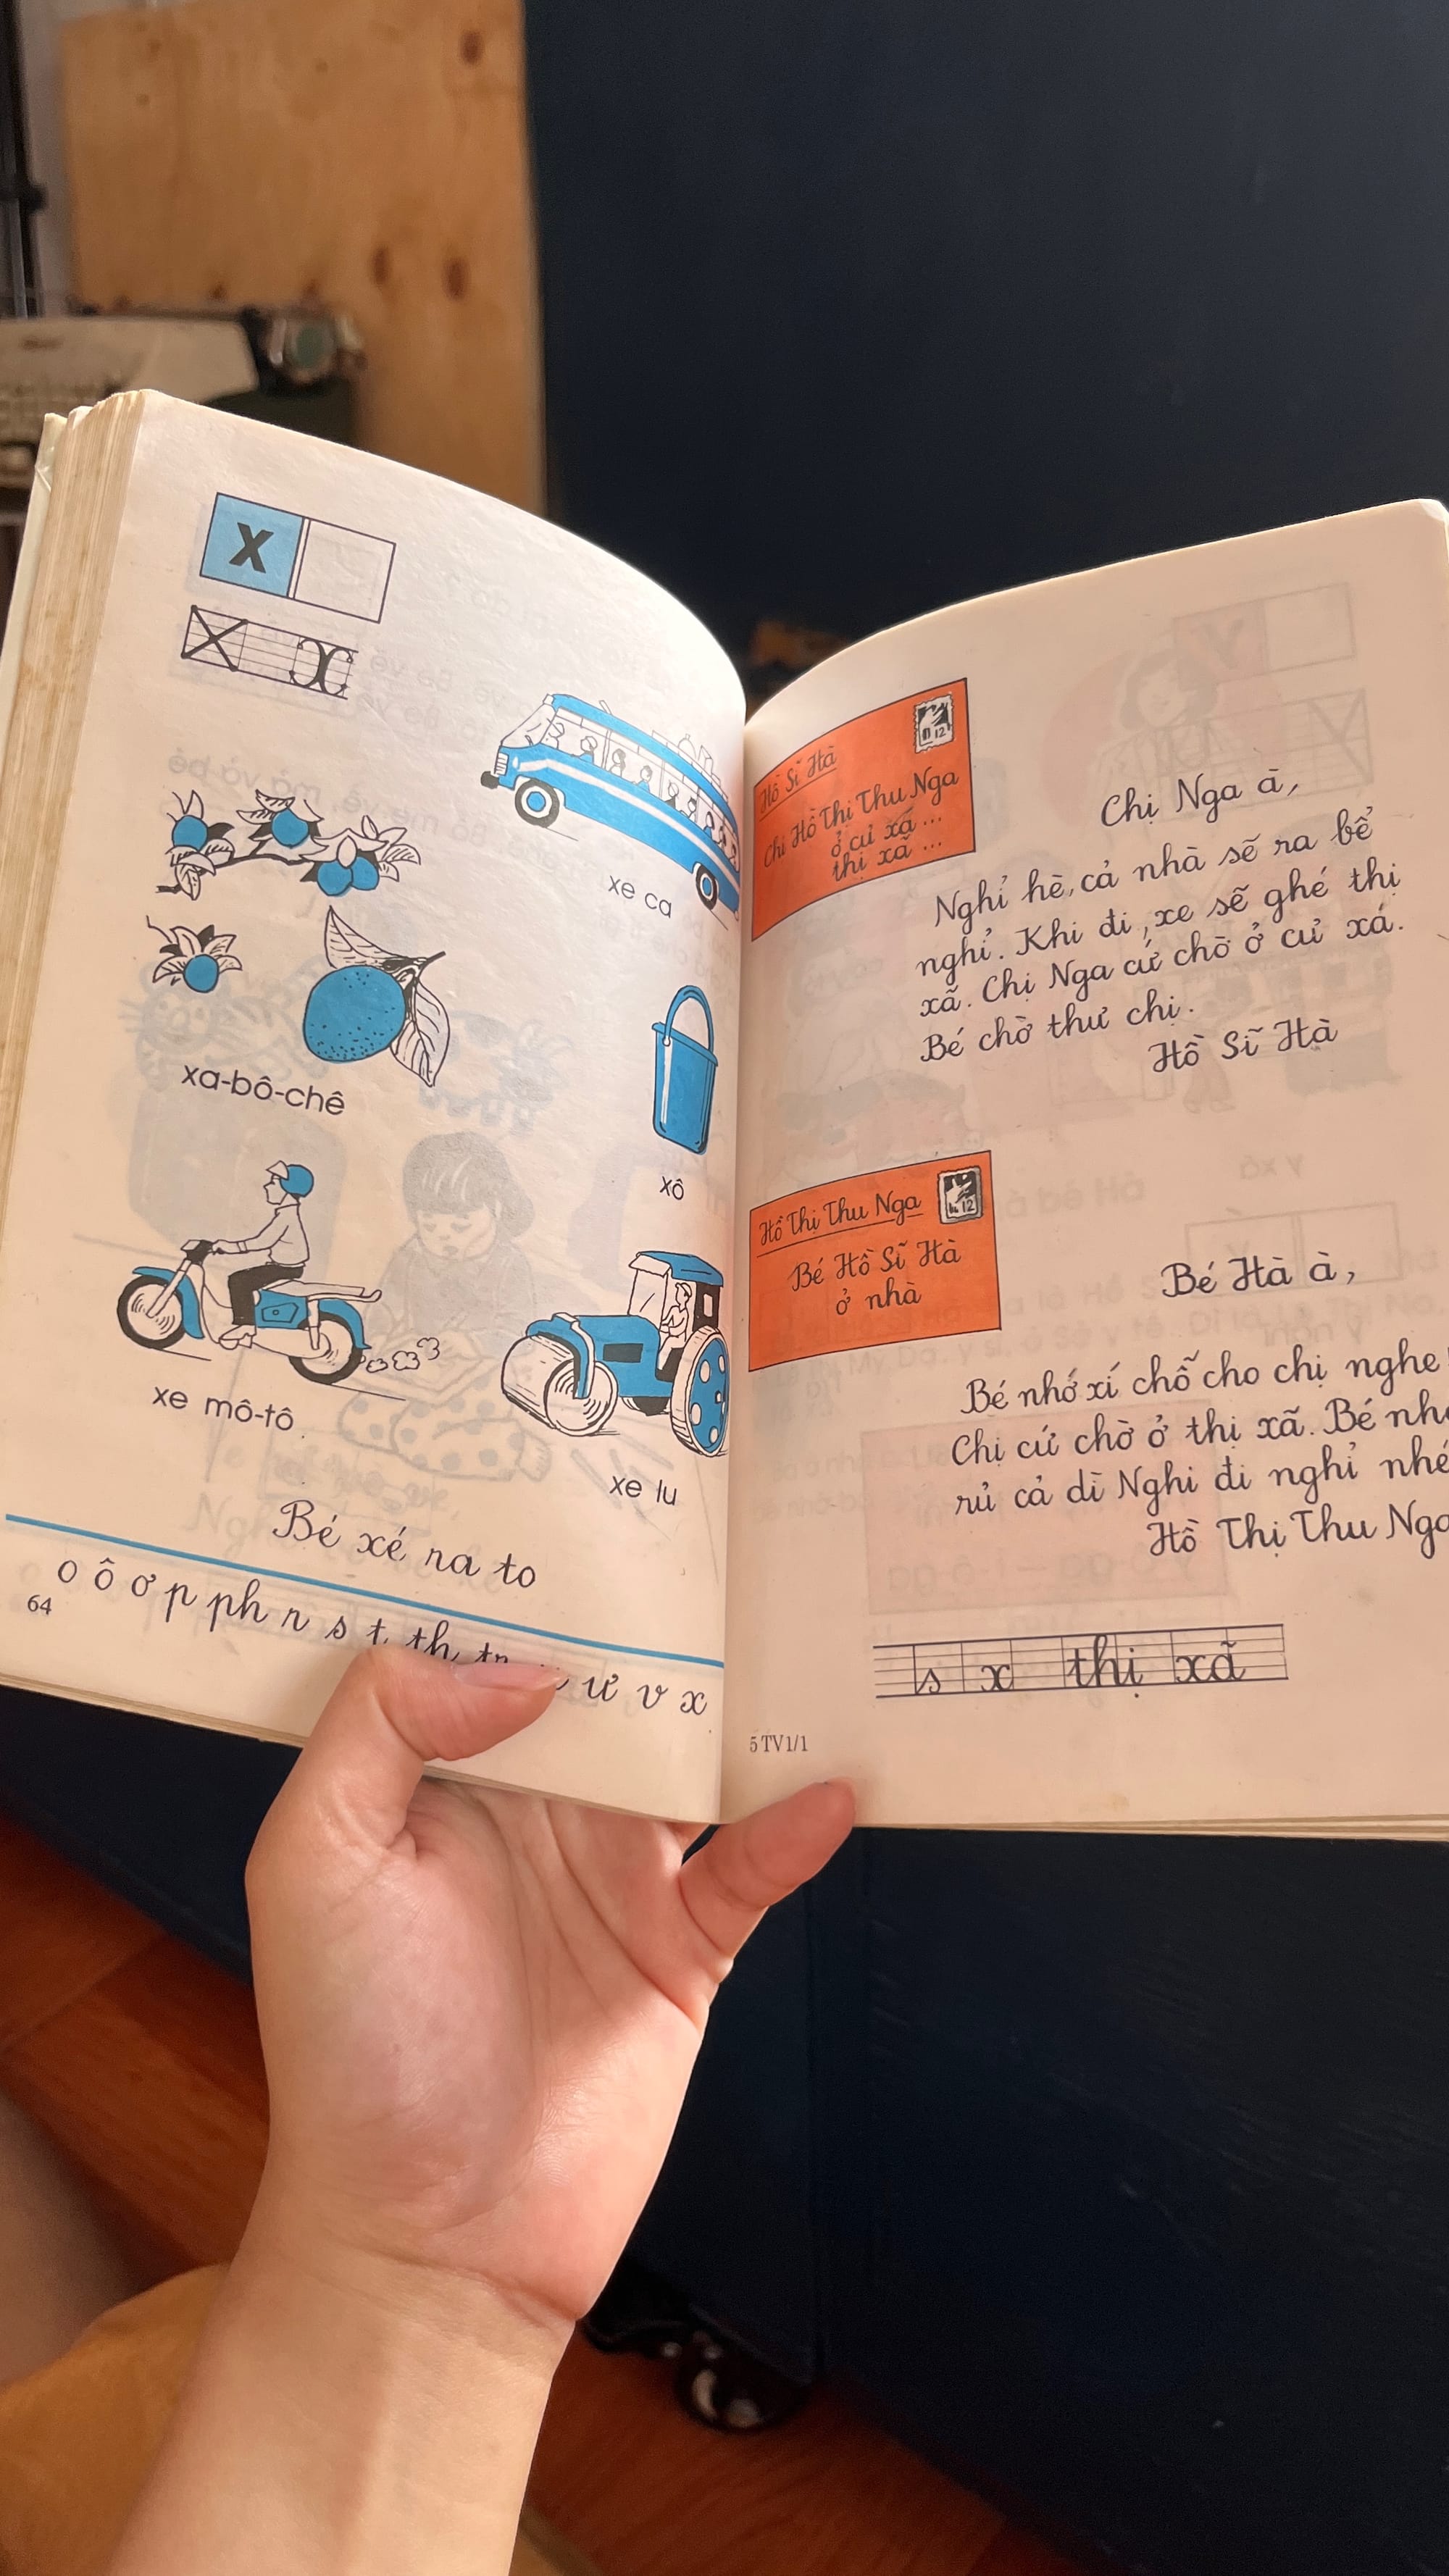 x
X x
xe ca
xa-bô-chê
xô
xe mô-tô
xe lu
Bé xé ra to
o ô ơ p ph r s t th tr ư v x
64
Hồ Sĩ Hà
Chị Hồ Thị Thu Nga
ở cư xá ...
thị xã ...
12
Chị Nga à,
Nghỉ hè, cả nhà sẽ ra bể
nghỉ. Khi đi, xe sẽ ghé thị
xã. Chị Nga cứ chờ ở cư xá.
Bé chờ thư chị.
Hồ Sĩ Hà
Hồ Thị Thu Nga
12
Bé Hồ Sĩ Hà
ở nhà
Bé Hà à,
Bé nhớ xí chỗ cho chị nghe
Chị cứ chờ ở thị xã. Bé
rủ cả dì Nghi đi nghỉ nhé
Hồ Thị Thu Nga
s x thị xã
5 TV1/1